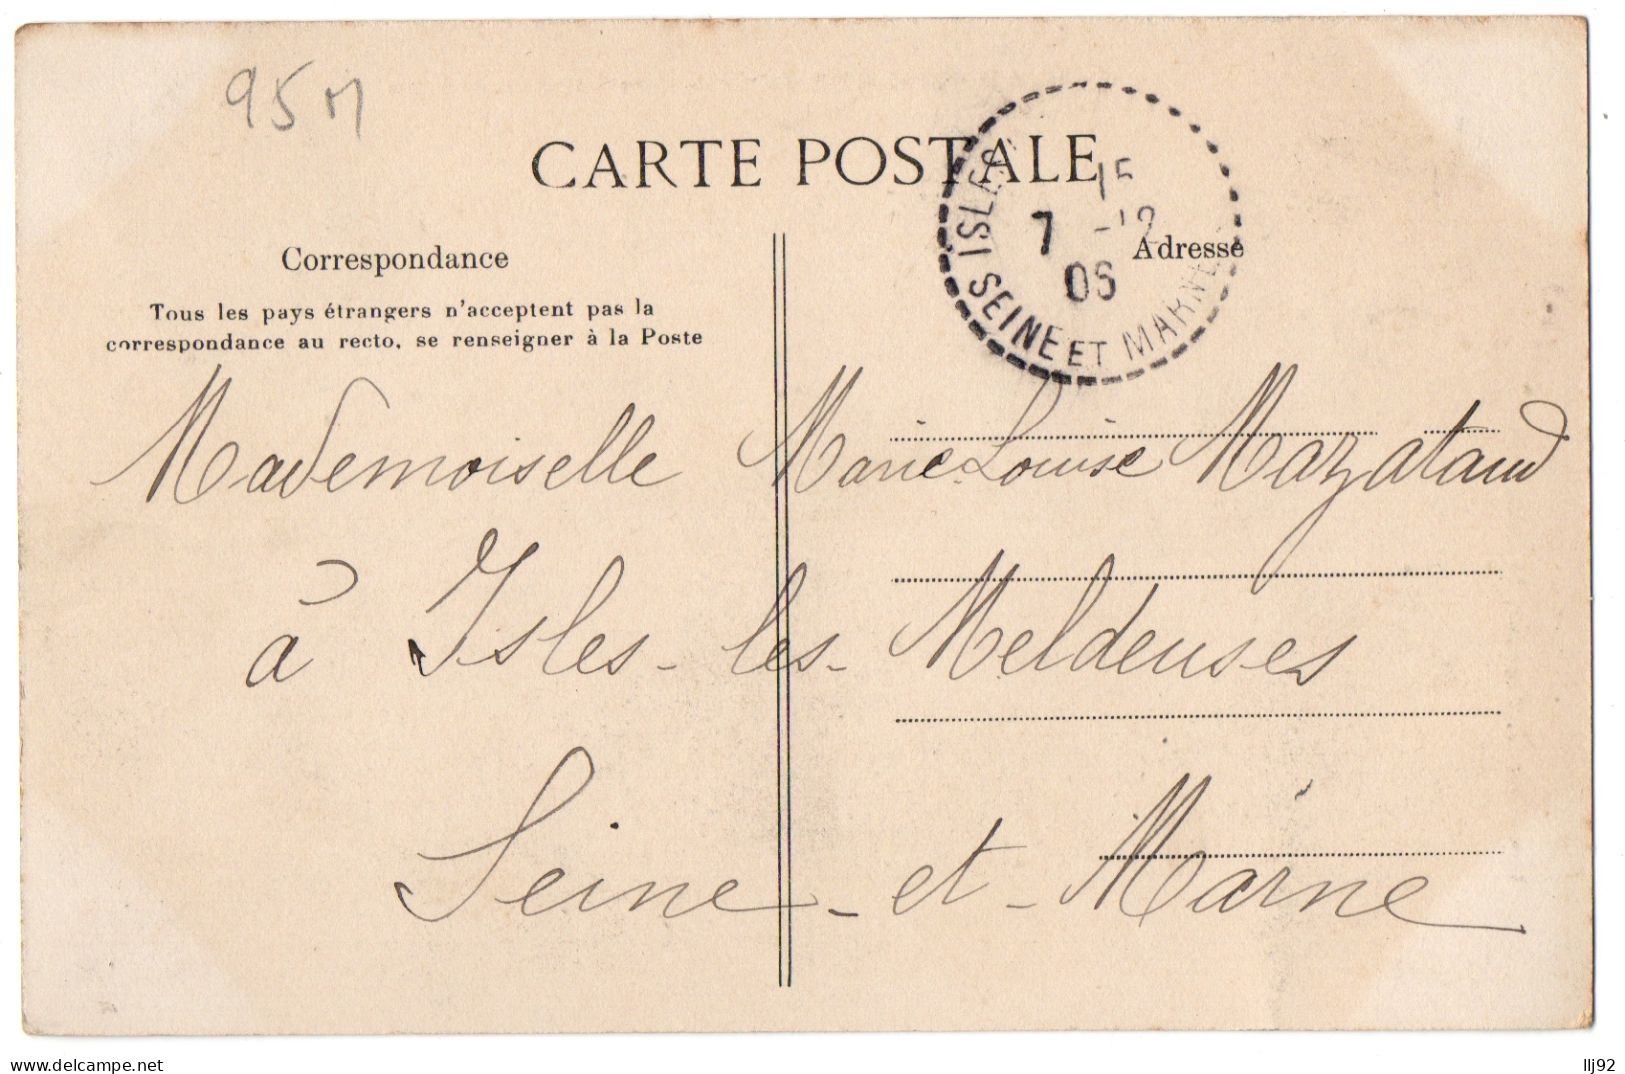 95 M
CARTE POSTALE
ISLES
SEINE ET MARNE
15
7 -12
06
Correspondance
Adresse
Tous les pays étrangers n'acceptent pas la
correspondance au recto, se renseigner à la Poste
Mademoiselle Marie-Louise Mazataud
à Isles-les-Meldeuses
Seine-et-Marne
www.delcampe.net
llj92